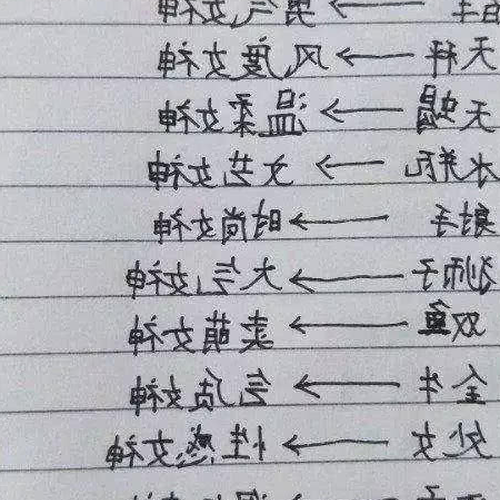 气女神
天秤→风度女神
天蝎→温柔女神
水瓶→文艺女神
射手→时尚女神
狮子→大气女神
双鱼→卖萌女神
金牛→气质女神
处女→性感女神